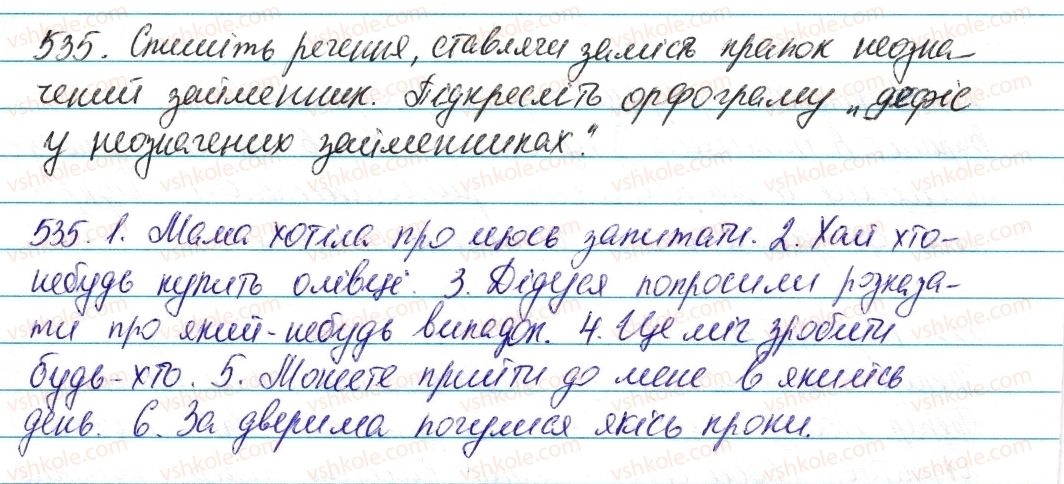 535. Спишіть речення, ставлячи замість крапок неозна-
чений займенник. Підкресліть орфограму „дефіс
у неозначених займенниках."
535. 1. Мама хотіла про щось запитати. 2. Хай хто-
небудь купить олівці. 3. Дідуся попросили розказа-
ти про який-небудь випадок. 4. Це міг зробити
будь-хто. 5. Можете прийти до мене в якийсь
день. 6. За дверима почулися якісь кроки.